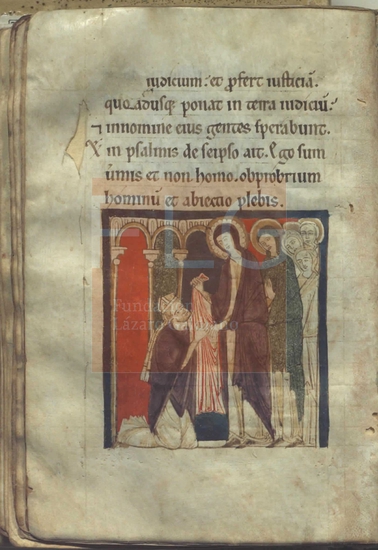 iudicium: et p̄fert iusticiā.
quo adusq; ponat in terra iudiciū.
⁊ innomine eius gentes sperabunt.
in psalmis de seipso ait. Ego sum
uīmis et non homo. obprobrium
hominū et abiectio plebis.
Fundación
Lázaro Galdiano